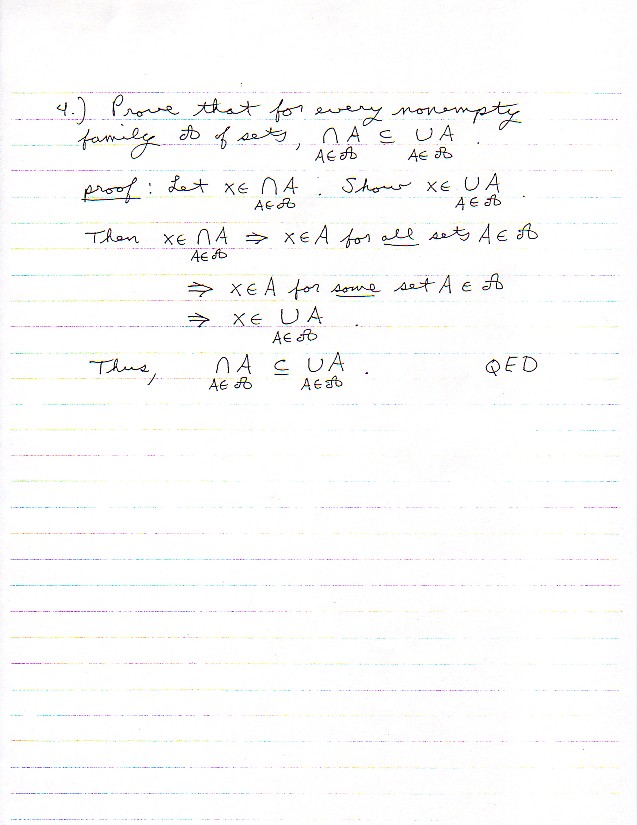 4.) Prove that for every nonempty
family 𝒜 of sets, ∩ A ⊆ ∪ A .
A∈𝒜 A∈𝒜
proof : Let x∈ ∩ A . Show x∈ ∪ A .
A∈𝒜 A∈𝒜
Then x∈ ∩ A ⇒ x∈A for all sets A∈𝒜
A∈𝒜
⇒ x∈A for some set A∈𝒜
⇒ x∈ ∪ A .
A∈𝒜
Thus, ∩ A ⊆ ∪ A . QED
A∈𝒜 A∈𝒜